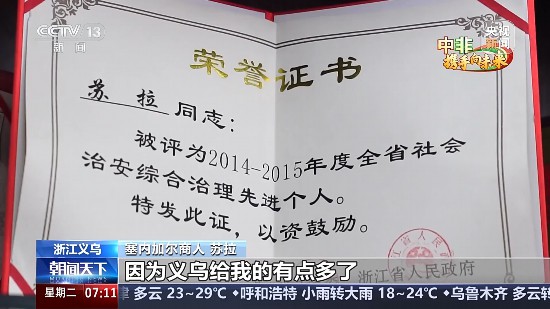 CCTV 13
新闻
央视
新闻
中非
携手向未来
荣誉证书
苏拉 同志：
被评为2014~2015年度全省社会
治安综合治理先进个人。
特发此证，以资鼓励。
浙江省人民政府
浙江义乌
塞内加尔商人 苏拉
朝闻天下
因为义乌给我的有点多了
星期二 07:11
多云 23~29℃ 呼和浩特 小雨转大雨 18~24℃ 乌鲁木齐 多云转